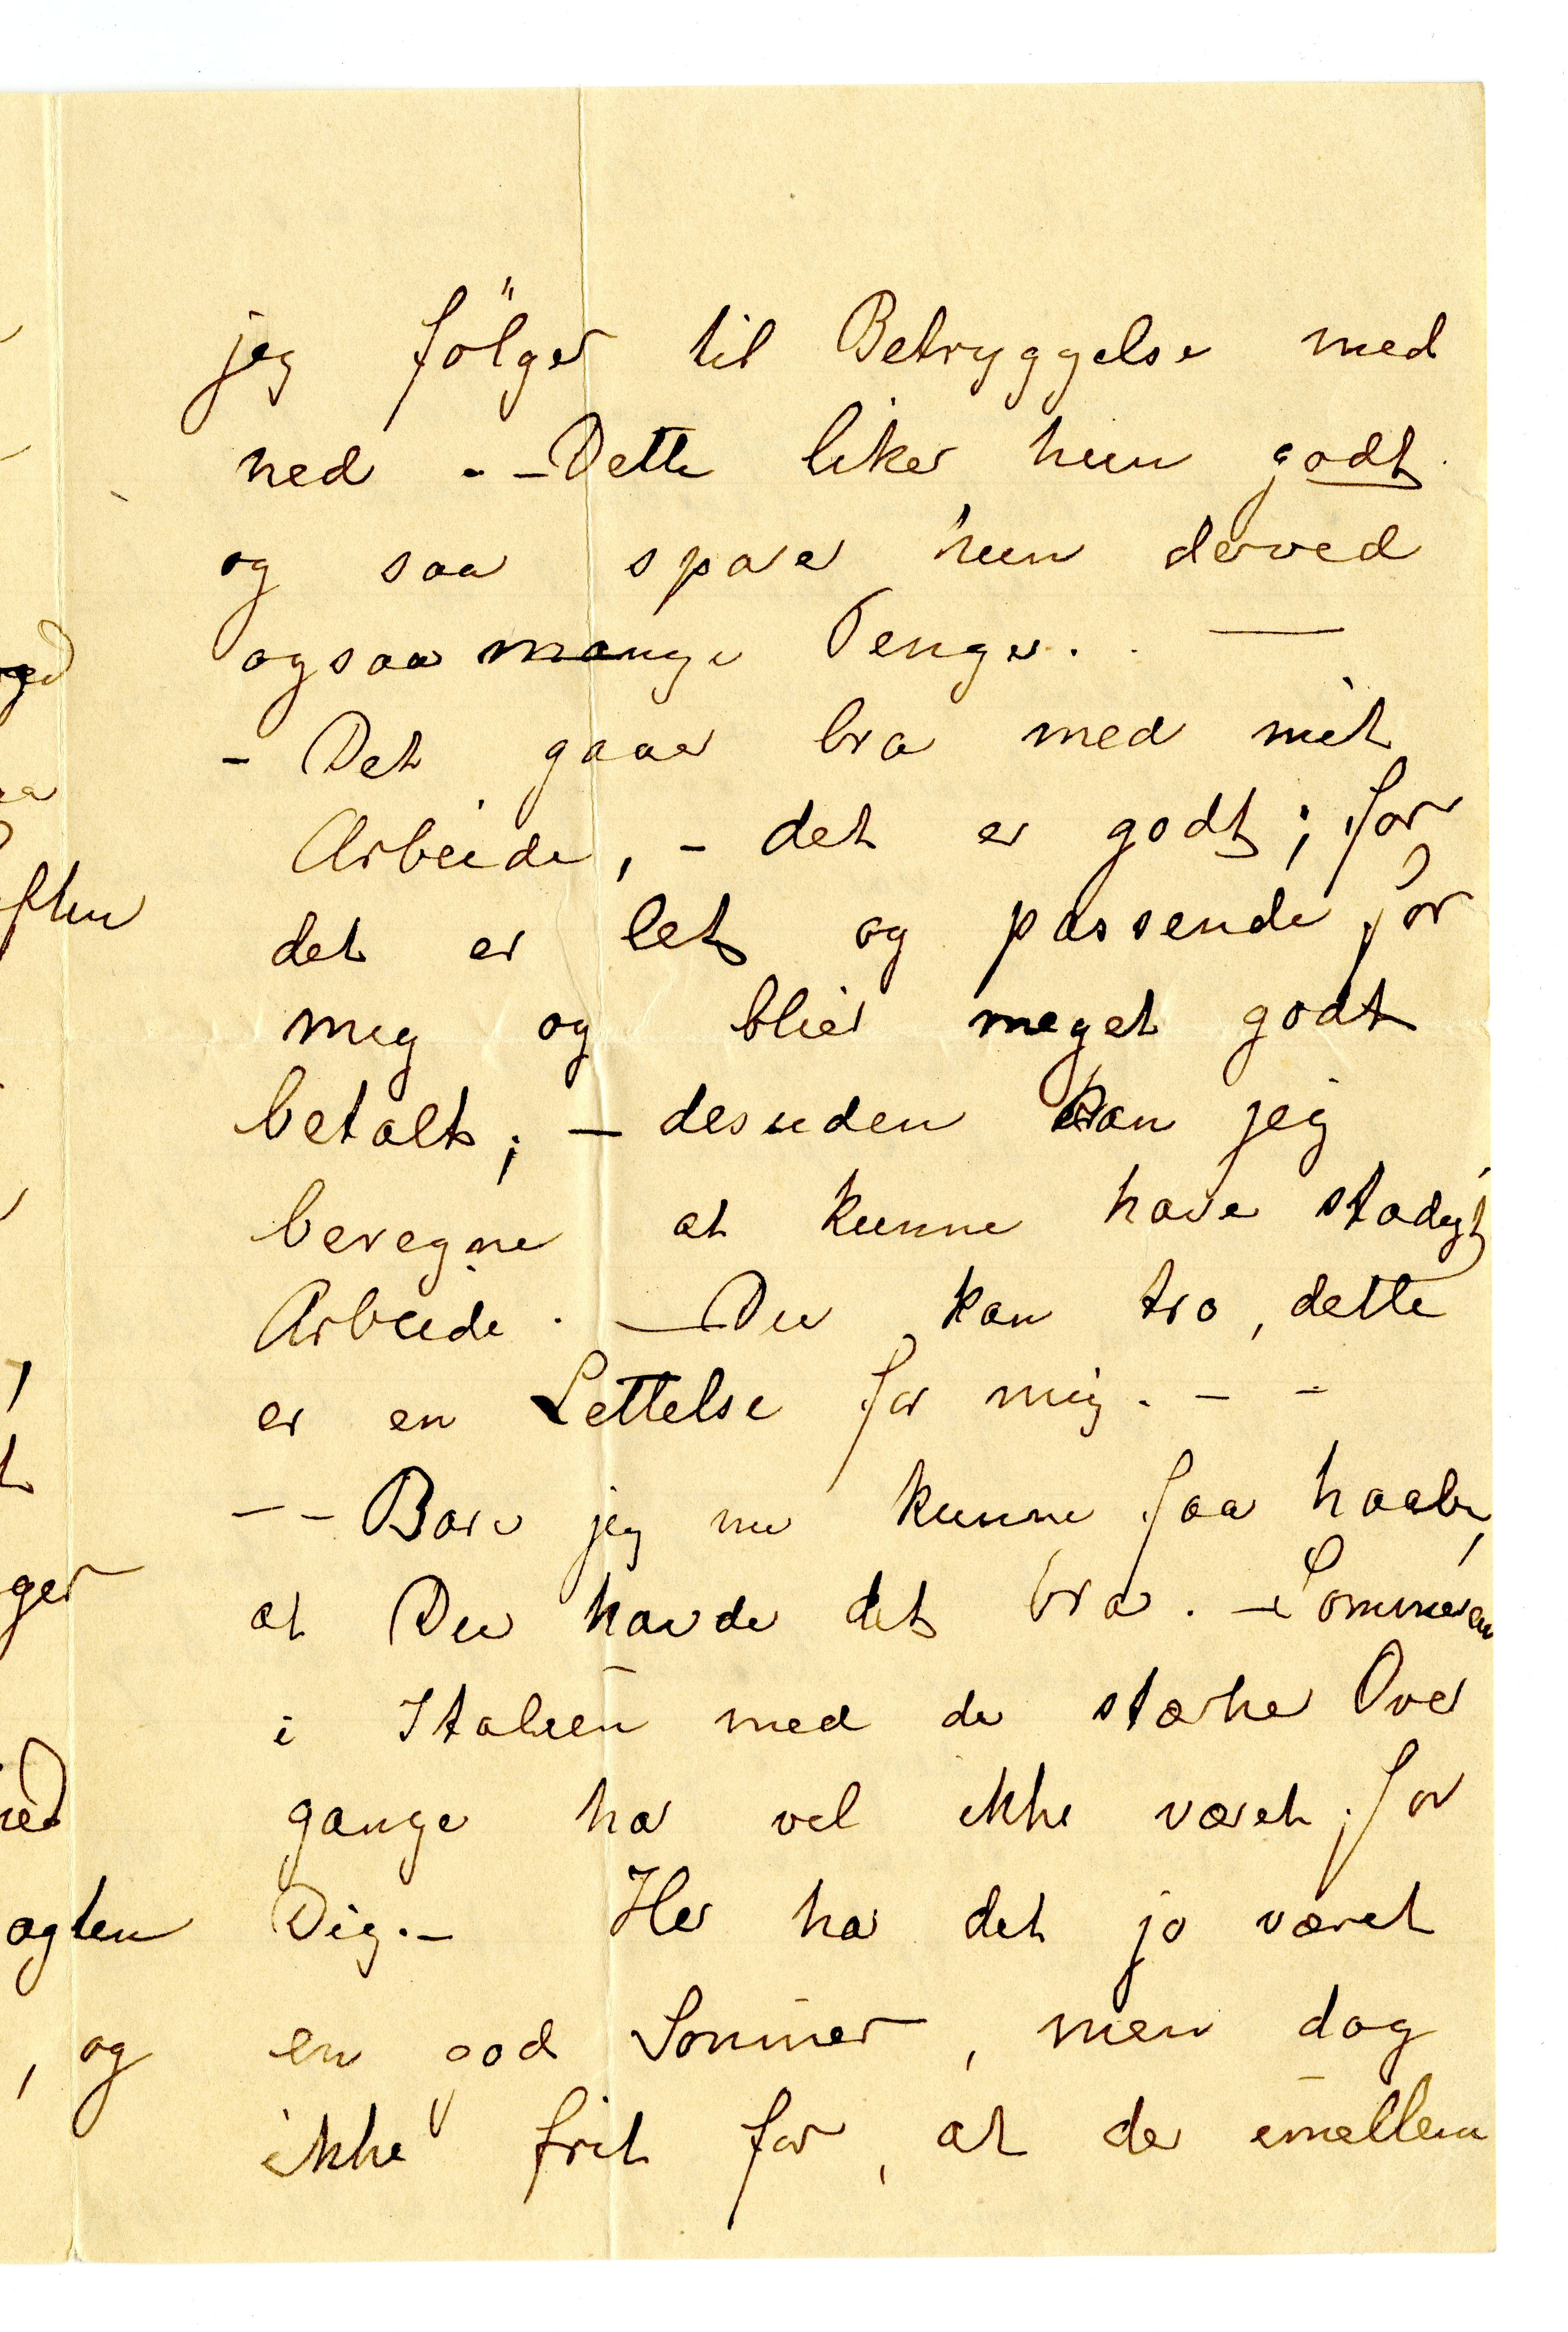 jeg følger til Betryggelse med
ned . - Dette liker hun godt
og saa sparer hun derved
ogsaa mange Penger. —
- Det gaar bra med mit
Arbeide, - det er godt; for
det er let og passende for
mig og blier meget godt
betalt; — desuden kan jeg
beregne at kunne have stadigt
Arbeide. — Du kan tro, dette
er en Lettelse for mig. - -
- - Bare jeg nu kunne faa haabe,
at Du havde det bra. - Sommeren
i Italien med de stærke Over
gange har vel ikke været for
Dig. - Her har det jo været
en god Sommer, men dog
ikke frit for, at der imellem
ged
ften
ger
ned
agten
, og